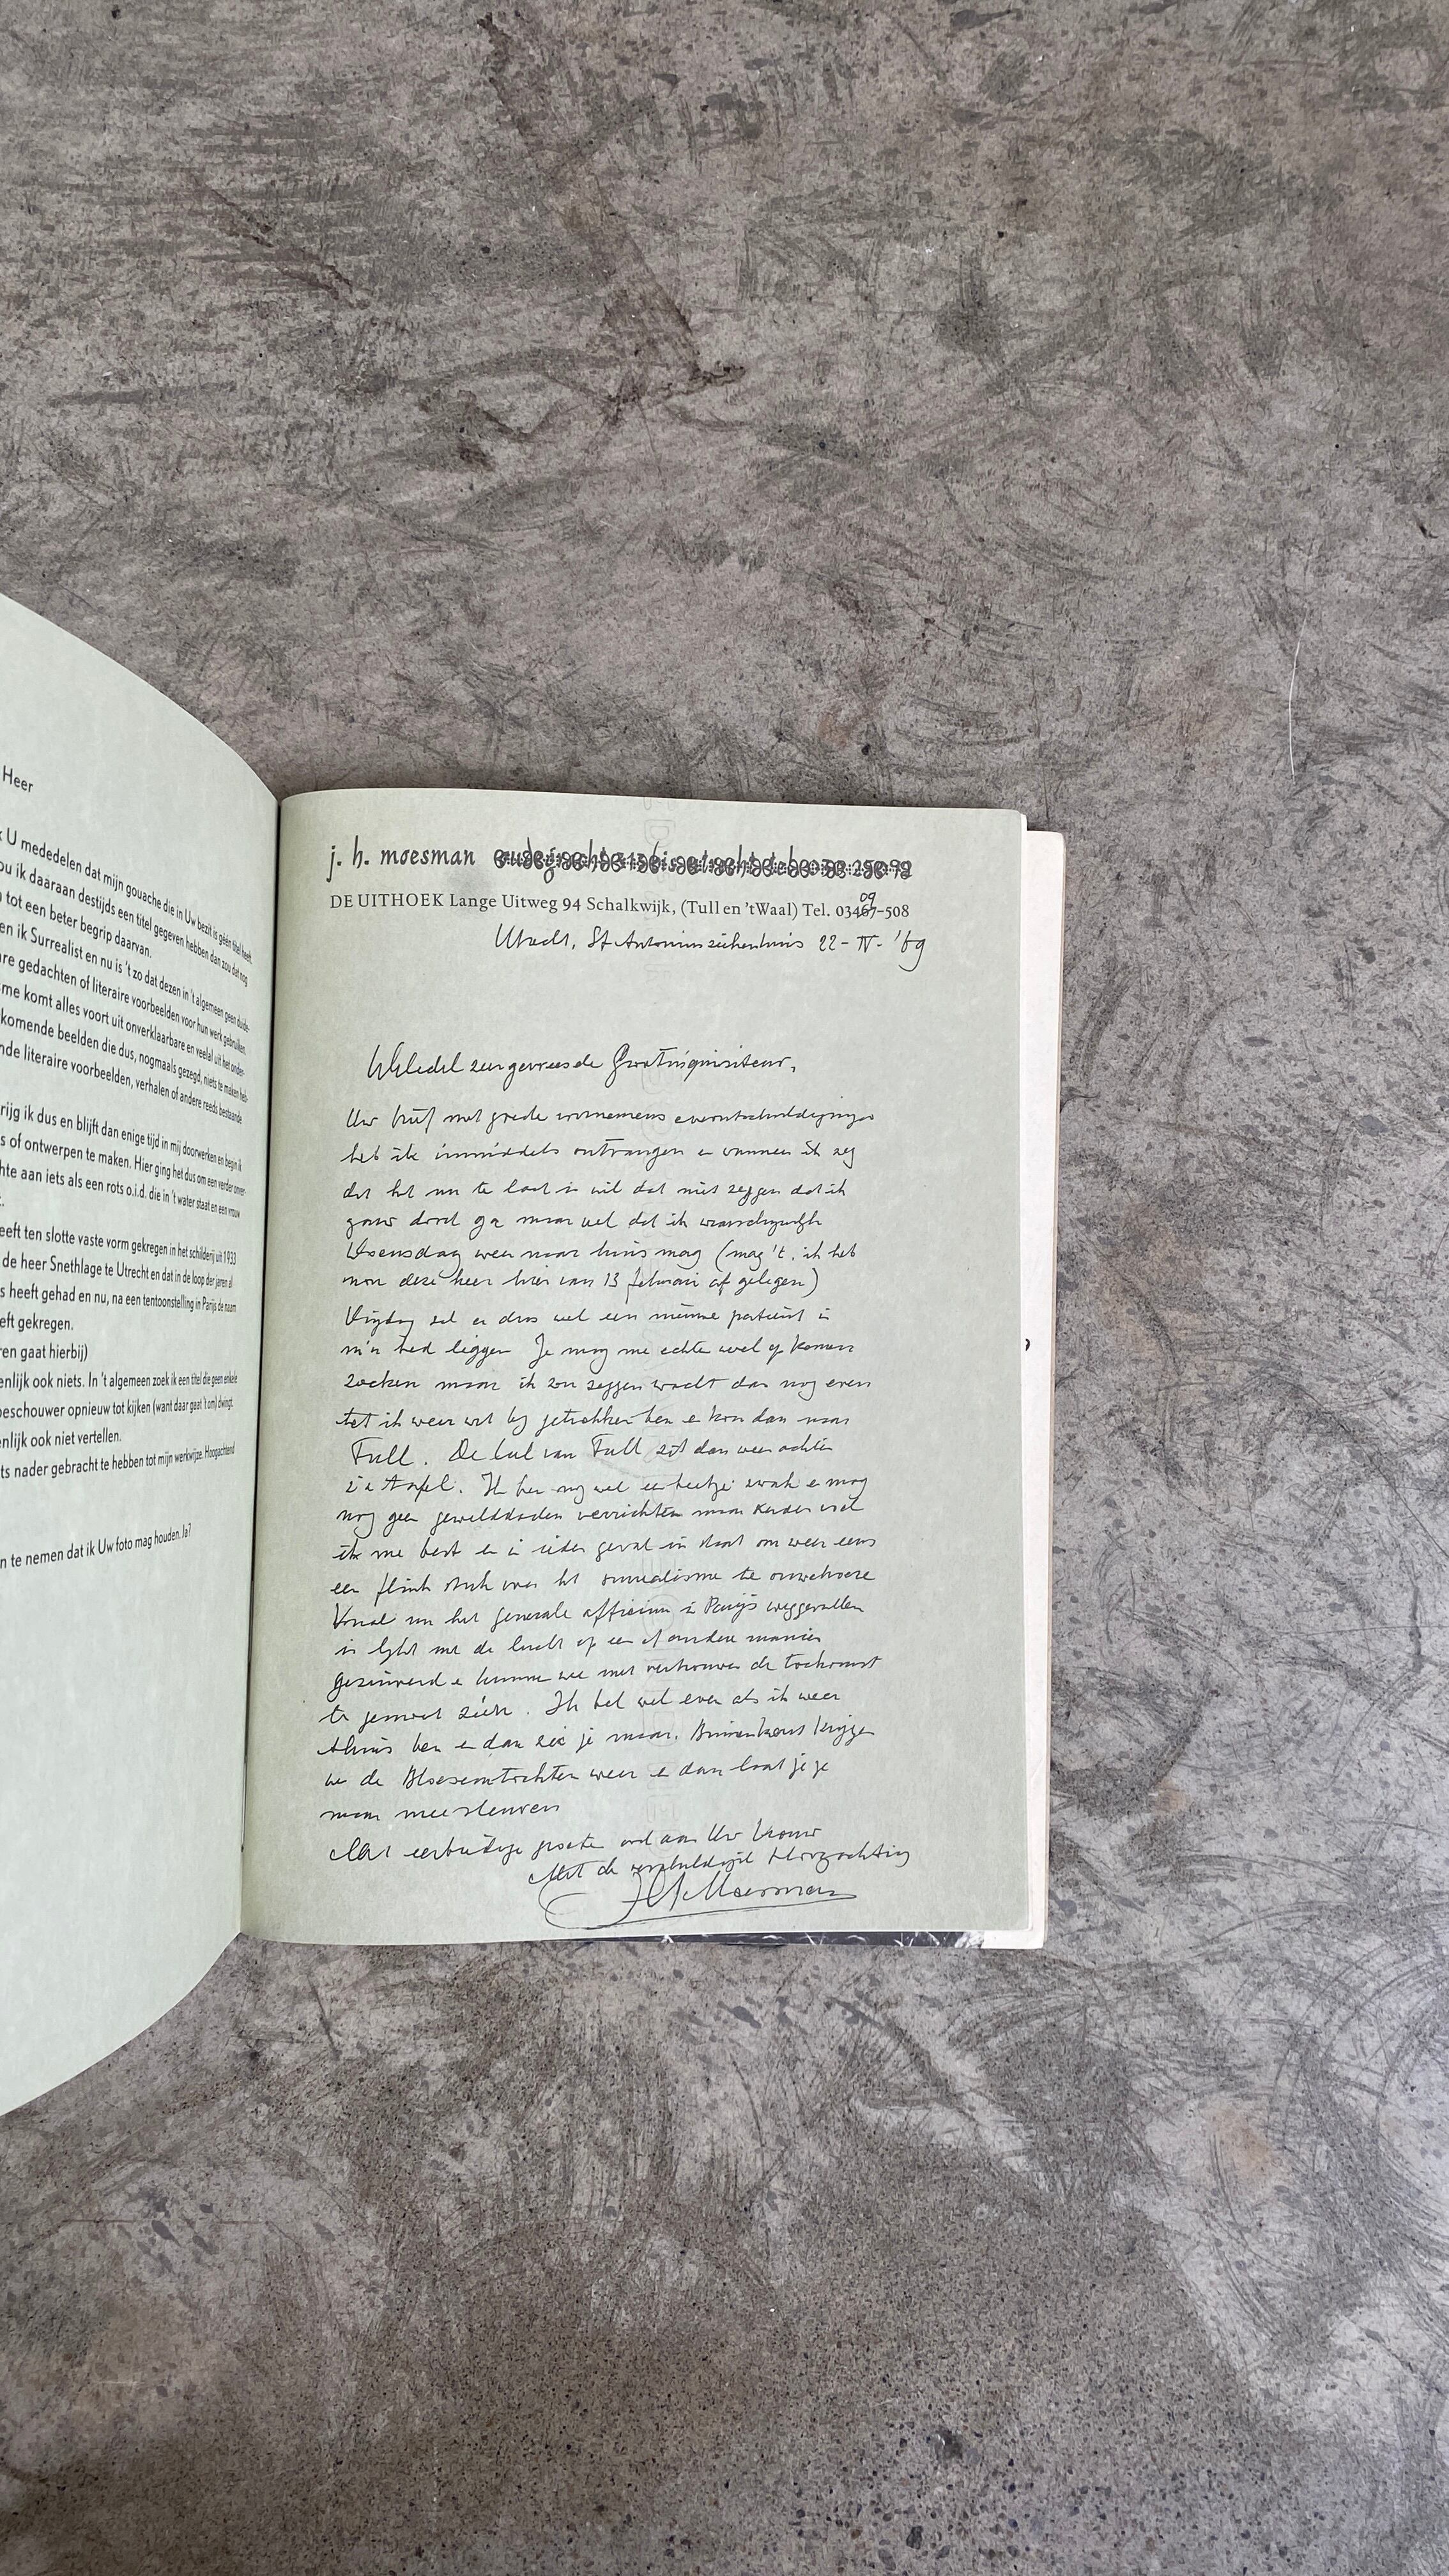 Heer
k U mededelen dat mijn gouache die in Uw bezit is géén titel heeft.
ou ik daaraan destijds een titel gegeven hebben dan zou dat nog
tot een beter begrip daarvan.
en ik Surrealist en nu is 't zo dat dezen in 't algemeen geen duide-
re gedachten of literaire voorbeelden voor hun werk gebruiken,
me komt alles voort uit onverklaarbare en veelal uit het onder-
komende beelden die dus, nogmaals gezegd, niets te maken heb-
nde literaire voorbeelden, verhalen of andere reeds bestaande
rijg ik dus en blijft dan enige tijd in mij doorwerken en begin ik
s of ontwerpen te maken. Hier ging het dus om een verder onver-
hte aan iets als een rots o.i.d. die in 't water staat en een vrouw
t.
eeft ten slotte vaste vorm gekregen in het schilderij uit 1933
de heer Snethlage te Utrecht en dat in de loop der jaren al
s heeft gehad en nu, na een tentoonstelling in Parijs de naam
eft gekregen.
en gaat hierbij)
enlijk ook niets. In 't algemeen zoek ik een titel die geen enkele
beschouwer opnieuw tot kijken (want daar gaat 't om) dwingt.
enlijk ook niet vertellen.
ts nader gebracht te hebben tot mijn werkwijze. Hoogachtend
n te nemen dat ik Uw foto mag houden. Ja?
j. h. moesman oudegracht bis utrecht
DE UITHOEK Lange Uitweg 94 Schalkwijk, (Tull en 't Waal) Tel. 03467-508
09
Utrecht, St Antoniusziekenhuis 22-IV-'69
WelEdel zeergevreesde Grootinquisiteur,
Uw brief met goede voornemens en verontschuldigingen
heb ik inmiddels ontvangen en wanneer ik zeg
dat het nu te laat is wil dat niet zeggen dat ik
gauw dood ga maar wel dat ik waarschijnlijk
Woensdag weer naar huis mag (mag 't. ik heb
deze keer hier van 13 februari af gelegen)
Vrijdag zal er dus wel een nieuwe patient in
m'n bed liggen Je mag me echter wel op komen
zoeken maar ik zou zeggen wacht dan nog even
tot ik weer wat bij getrokken ben en kom dan naar
Tull. De lul van Tull zit dan weer achter
z'n tafel. Ik ben nog wel een beetje zwak en mag
nog geen gewelddaden verrichten maar verder voel
ik me best en in ieder geval in staat om weer eens
een flink stuk over het surrealisme te ouwehoere
Vooral nu het generale officium in Parijs weggevallen
is lijkt me de lucht op een of andere manier
gezuiverd en kunnen we met vertrouwen de toekomst
te gemoet zien. Ik bel wel even als ik weer
thuis ben en dan zie je maar. Binnenkort krijgen
we de Bloesemtochten weer en dan laat je je
maar meesleuren
Met eerbiedige groeten ook aan Uw Vrouw
Met de verschuldigde Hoogachting
JHMoesman